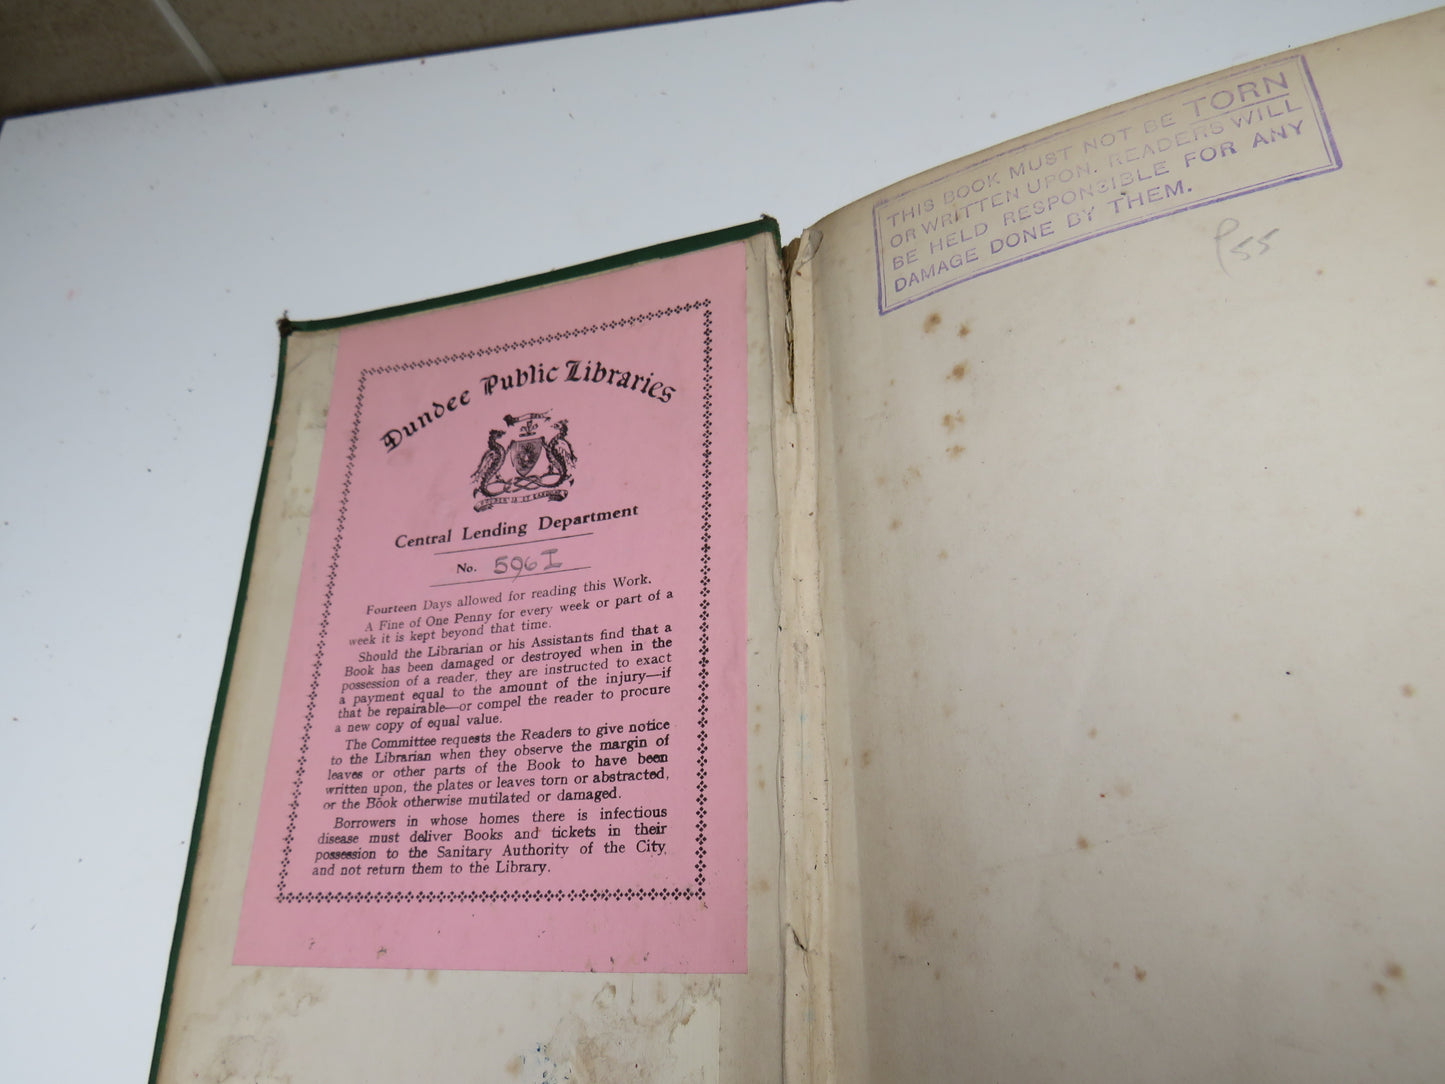 Dundee Public Libraries
Central Lending Department
No. 596 I
Fourteen Days allowed for reading this Work.
A Fine of One Penny for every week or part of a
week it is kept beyond that time.
Should the Librarian or his Assistants find that a
Book has been damaged or destroyed when in the
possession of a reader, they are instructed to exact
a payment equal to the amount of the injury—if
that be repairable—or compel the reader to procure
a new copy of equal value.
The Committee requests the Readers to give notice
to the Librarian when they observe the margin of
leaves or other parts of the Book to have been
written upon, the plates or leaves torn or abstracted,
or the Book otherwise mutilated or damaged.
Borrowers in whose homes there is infectious
disease must deliver Books and tickets in their
possession to the Sanitary Authority of the City,
and not return them to the Library.
THIS BOOK MUST NOT BE TORN
OR WRITTEN UPON. READERS WILL
BE HELD RESPONSIBLE FOR ANY
DAMAGE DONE BY THEM.
P55